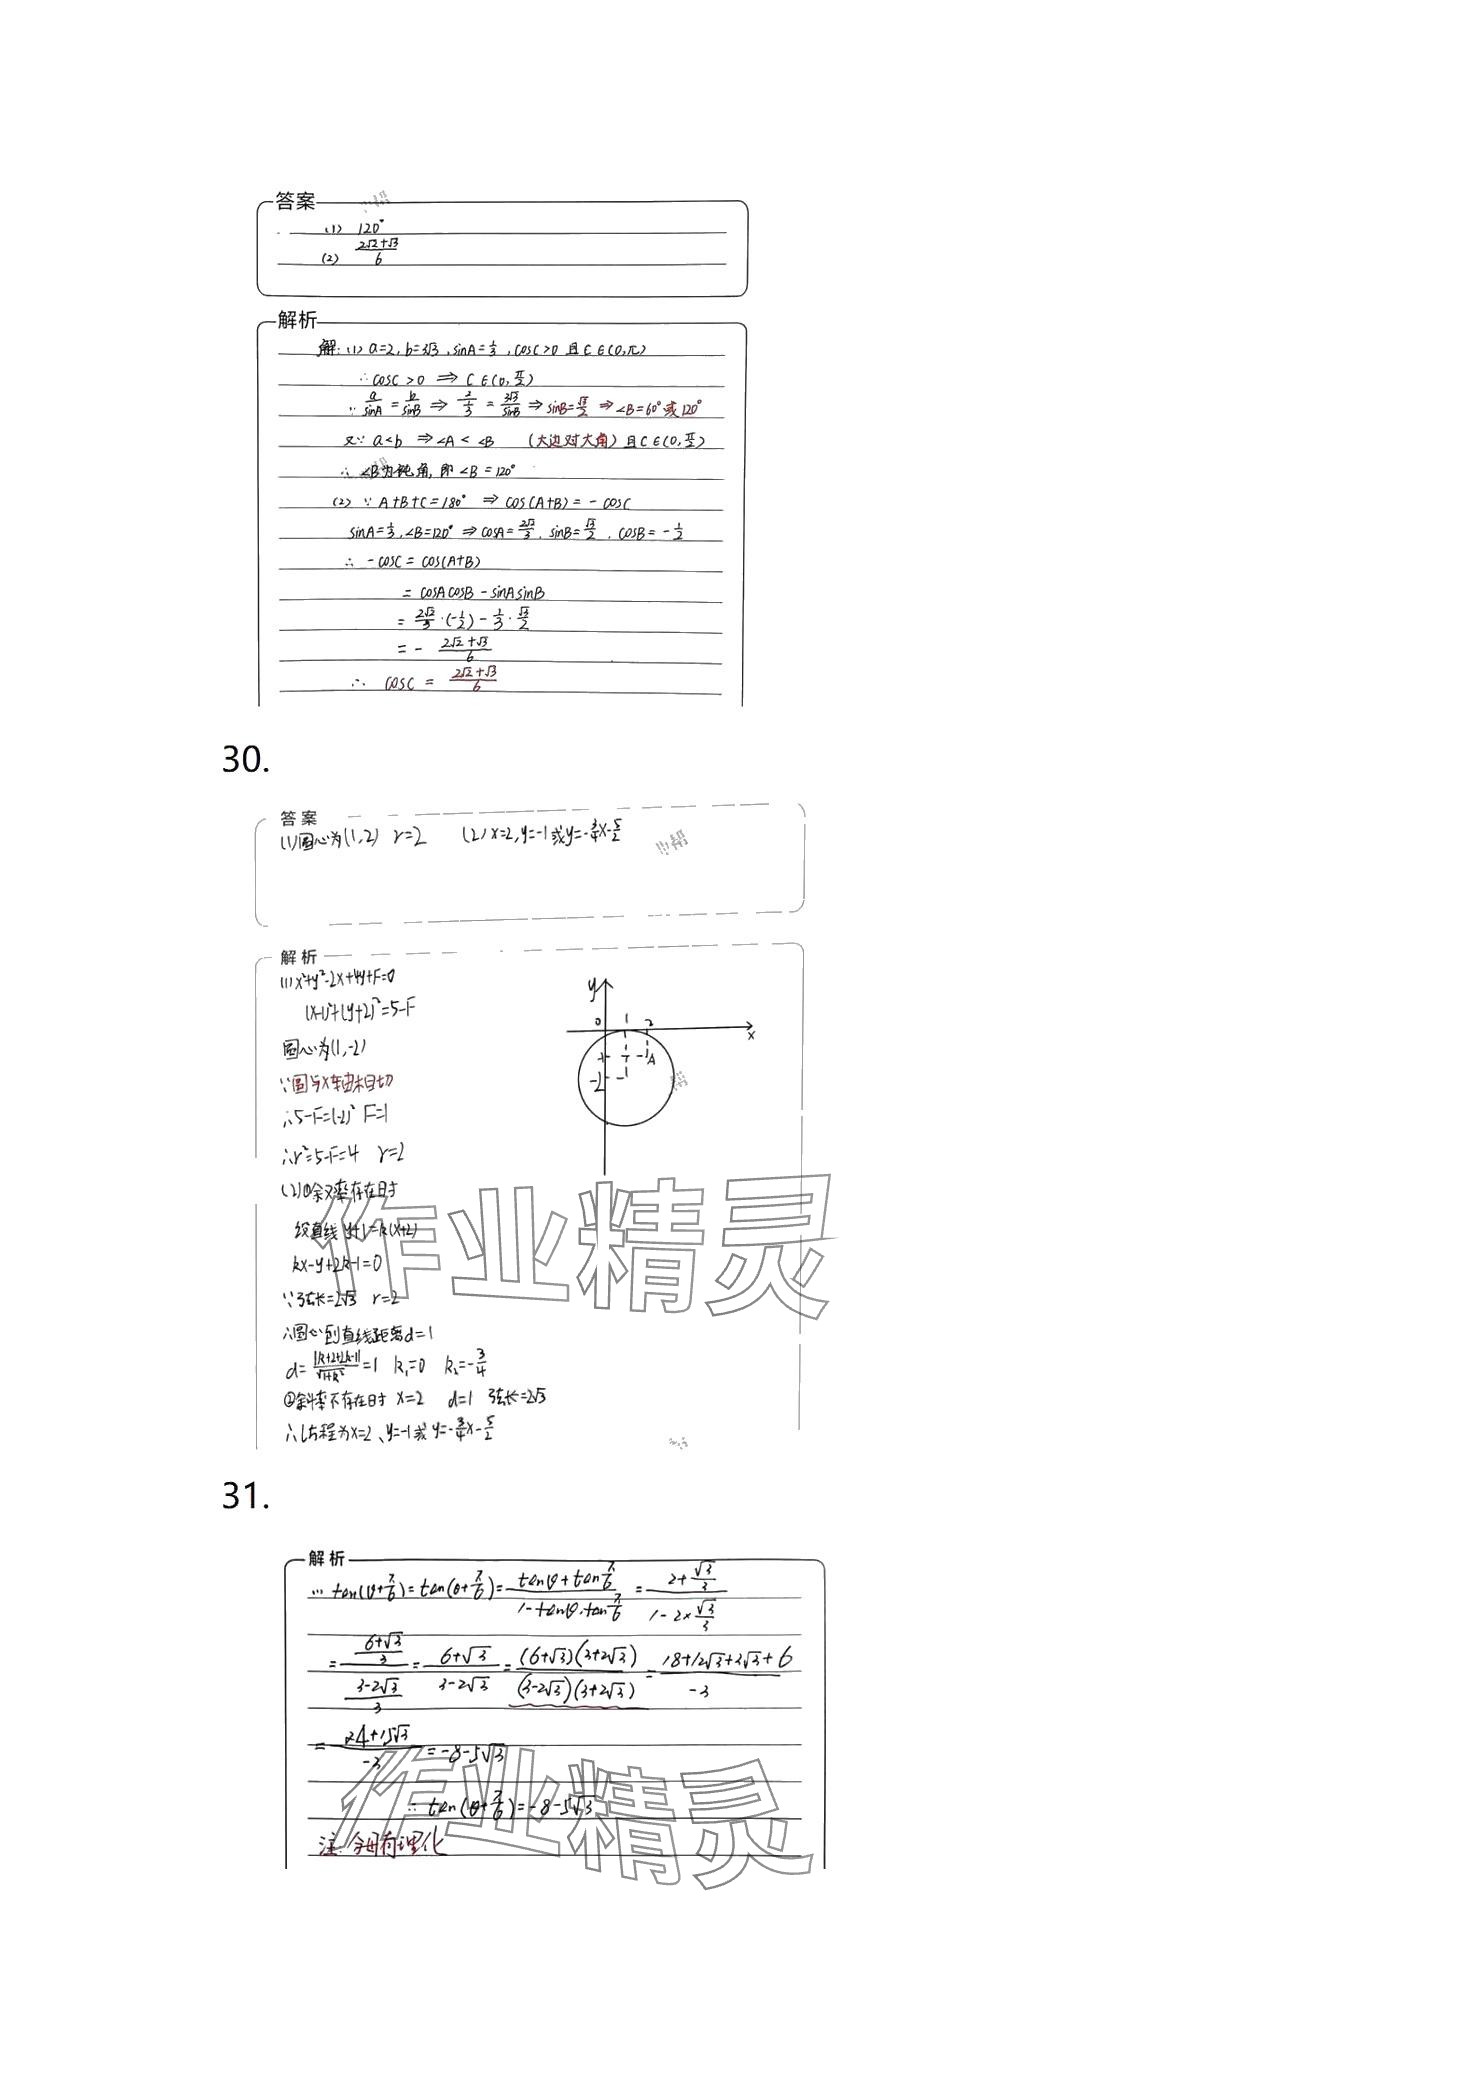 答案
(1) 120°
(2) (2√2+√3)/6
解析
解: (1) a=2, b=3√3, sinA=1/3, cosC>0 且 C∈(0,π)
∴cosC>0 ⇒ C∈(0,π/2)
∵ a/sinA = b/sinB ⇒ 2/(1/3) = 3√3/sinB ⇒ sinB=√3/2 ⇒ ∠B=60°或120°
又∵ a<b ⇒∠A<∠B (大边对大角) 且C∈(0,π/2)
∴ ∠B为钝角, 即∠B=120°
(2) ∵ A+B+C=180° ⇒ cos(A+B)=-cosC
sinA=1/3, ∠B=120° ⇒ cosA=2√2/3, sinB=√3/2, cosB=-1/2
∴ -cosC=cos(A+B)
= cosAcosB-sinAsinB
= 2√2/3·(-1/2)-1/3·√3/2
= - (2√2+√3)/6
∴ cosC = (2√2+√3)/6
30.
答案
(1)圆心为(1,2) r=2 (2)x=2,y=-1或y=-3/4x-5/2
解析
(1)x²+y²-2x+4y+F=0
(x-1)²+(y+2)²=5-F
圆心为(1,-2)
∵圆与x轴相切
∴5-F=(-2)² F=1
∴r²=5-F=4 r=2
(2)①斜率存在时
设直线 y+1=k(x+2)
kx-y+2k-1=0
∵弦长=2√3 r=2
∴圆心到直线距离d=1
d=|k+2+2k-1|/√(1+k²)=1 k₁=0 k₂=-3/4
②斜率不存在时 x=2 d=1 弦长=2√3
∴方程为x=2、y=-1或y=-3/4x-5/2
y
0 1 2
x
-1 A
-2
作业精灵
31.
解析
∵ tan(θ+π/6)=tan(θ+π/6)=(tanθ+tanπ/6)/(1-tanθ·tanπ/6)=(2+√3/3)/(1-2×√3/3)
=((6+√3)/3)/((3-2√3)/3)=(6+√3)/(3-2√3)=(6+√3)(3+2√3)/(3-2√3)(3+2√3)=(18+12√3+3√3+6)/-3
=(24+15√3)/-3=-8-5√3
∴ tan(θ+π/6)=-8-5√3
注:分母有理化
作业精灵